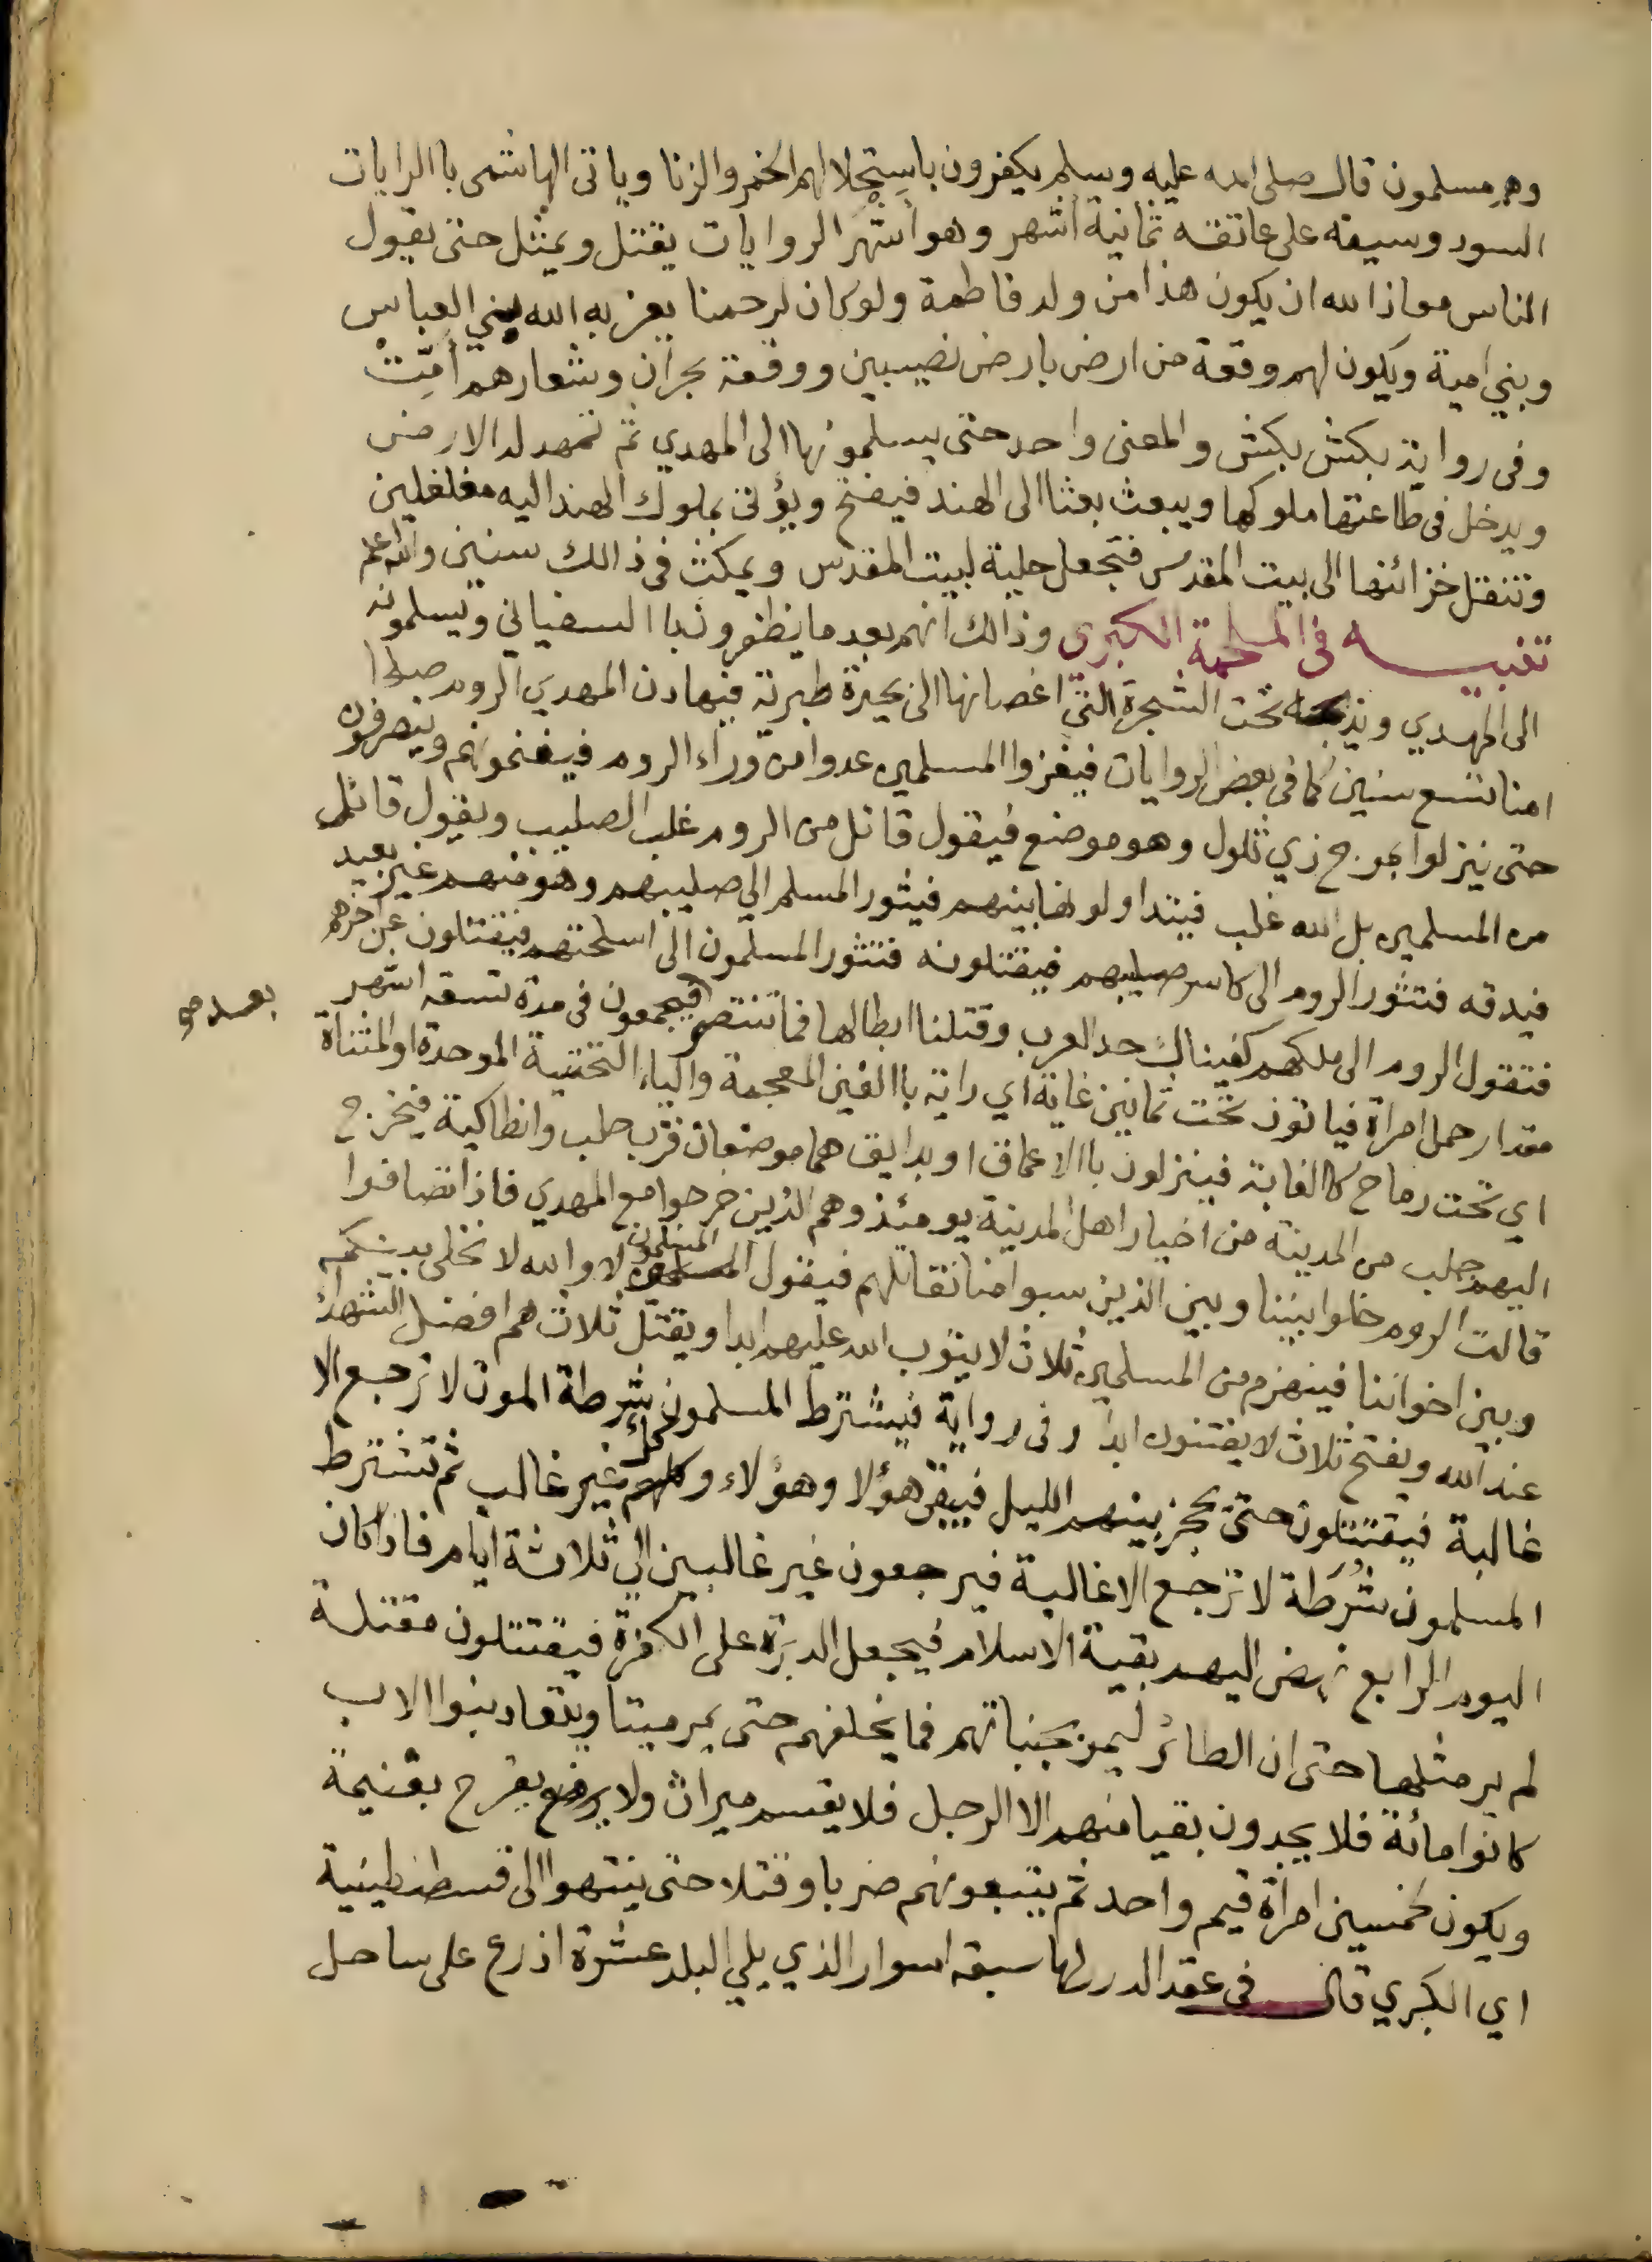 وهم مسلمون قال صلى الله عليه وسلم يكفرون باستحلالهم الخمر والزنا وياتى الهاشمى باالرايات
السود وسيفه على عاتقه ثمانية اشهر وهو اشهر الروايات يقتل ويمثل حتى يقول
الناس معاذ الله ان يكون هذا من ولد فاطمة ولو كان لرحمنا يعز به الله ببني العباس
وبني امية ويكون لهم وقعة من ارض بارض نصيبين ووقعة بحران وشعارهم امت
وفى رواية بكش بكش والمعنى واحد حتى يسلمونها الى المهدي ثم تمهد له الارض
ويدخل فى طاعتها ملوكها ويبعث بعثا الى الهند فيفتح ويؤتى بملوك الهند اليه مغلغلين
وتنقل خزائنها الى بيت المقدس فتجعل حلية لبيت المقدس ويمكث فى ذالك سنين والله اعلم
تنبيه فى الملحمة الكبرى وذالك انهم بعد ما يظفرون باالسفياني ويسلمونه
الى المهدي ويذبحه تحت الشجرة التي اغصانها الى بحيرة طبرية فيهادن المهدي الروم صلحا
امنا تسع سنين كما فى بعض الروايات فيغزوا المسلمين عدوا من وراء الروم فيغنمونهم وينصرفون
حتى ينزلوا بمرج ذي تلول وهو موضع فيقول قائل من الروم غلب الصليب ويقول قائل
من المسلمين بل الله غلب فيتداولونها بينهم فيثور المسلم الي صليبهم وهو منهم غير بعيد
فيدقه فتثور الروم الى كاسر صليبهم فيقتلونه فتثور المسلمون الى اسلحتهم فيقتتلون عن اخرهم
فتقول الروم الى ملكهم كفيناك حد العرب وقتلنا ابطالها فما تنتظر فيجمعون فى مدة تسعة اشهر
بعد
مقدار حمل امراة فياتون تحت ثمانين غاية اي راية باالغين المعجمة والياء التحتية الموحدة او المثناة
اي تحت رماح كالغابة فينزلون باالاعماق او بدابق هما موضعان قرب حلب وانطاكية فيخرج
اليهم جلب من المدينة من اخيار اهل المدينة يومئذ وهم الذين خرجوا مع المهدي فاذا تصافوا
قالت الروم خلوا بيننا وبين الذين سبوا منا نقاتلهم فيقول المسلمون لا والله لا نخلى بينكم
وبين اخواننا فينهزم من المسلمين ثلاث لا يتوب الله عليهم ابدا ويقتل ثلاث هم افضل الشهداء
عند الله ويفتح ثلاث لا يفتنون ابدا وفى رواية فيشترط المسلمون شرطة الموت لا ترجع الا
غالبة فيقتتلون حتى يحجز بينهم الليل فيبقى هؤلا وهؤلاء وكل غير غالب ثم تشترط
المسلمون شرطة لا ترجع الا غالبة فيرجعون غير غالبين الي ثلاثة ايام فاذا كان
اليوم الرابع نهض اليهم بقية الاسلام فيجعل الدبرة على الكفرة فيقتتلون مقتلة
لم ير مثلها حتى ان الطائر ليمر بجنباتهم فما يخلفهم حتى يمر ميتا ويتعاد بنوا الاب
كانوا مائة فلا يجدون بقيا منهم الا الرجل فلا يقسم ميراث ولا يفرح بغنيمة
ويكون لخمسين امراة قيم واحد ثم يتبعونهم ضربا وقتلا حتى ينتهوا الى قسطنطينية
اي الكبري قال فى عقد الدرر لها سبعة اسوار الذي يلي البلد عشرة اذرع على ساحل